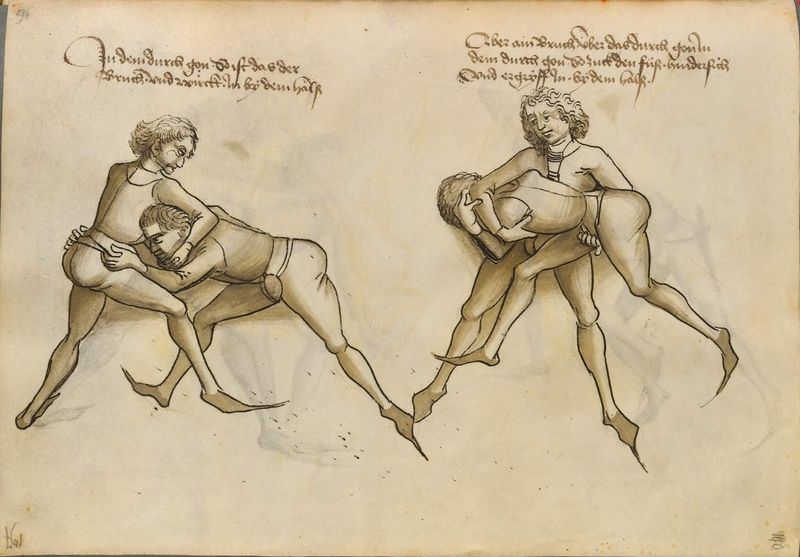 In dem durch gon So ist das der
Bruch vnd würck In by dem hals
Aber ain Bruch über das durch gon In
dem durch gon So zuck den füß hindersich
Vnd ergryff In by dem hals